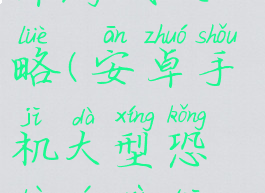 lüè ān zhuó shǒu
略(安卓手
jī dà xíng kǒng
机大型恐